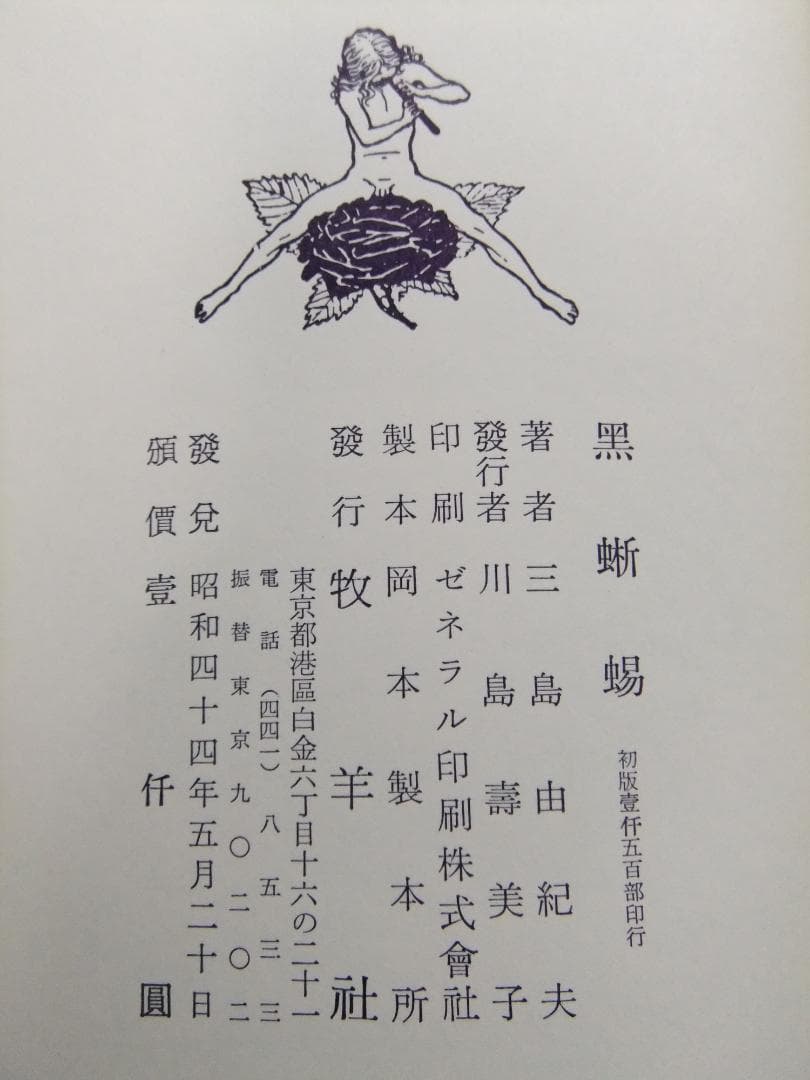 黑蜥蜴 初版壹仟五百部印行
著者 三島由紀夫
發行者 川島壽美子
印刷 ゼネラル印刷株式會社
製本 岡本製本所
發行 牧羊社
東京都港區白金六丁目十六の二十一
電話(四四一)八五三三
振替東京九〇二〇二
發兌 昭和四十四年五月二十日
頒價 壹仟圓